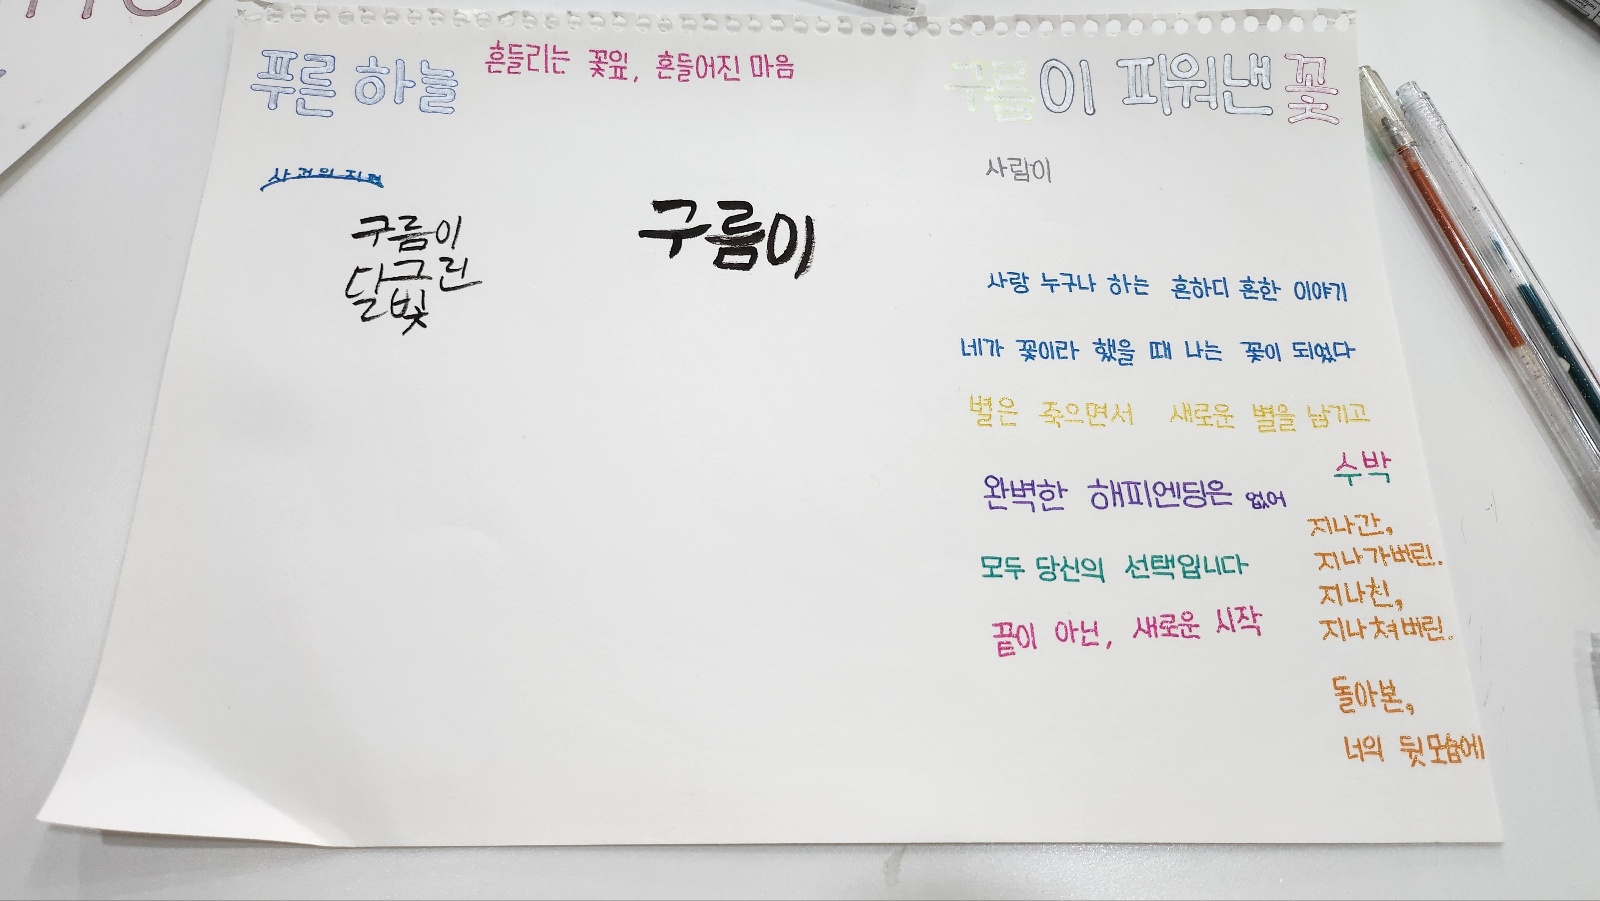 푸른 하늘
흔들리는 꽃잎, 흔들어진 마음
구름이 피워낸 꽃
사람이
구름이
달그린
빛
구름이
사랑 누구나 하는 흔하디 흔한 이야기
네가 꽃이라 했을 때 나는 꽃이 되었다
별은 죽으면서 새로운 별을 남기고
수박
완벽한 해피엔딩은 없어
지나간,
지나가버린.
모두 당신의 선택입니다
지나친,
지나쳐버린.
끝이 아닌, 새로운 시작
돌아본,
너의 뒷모습에